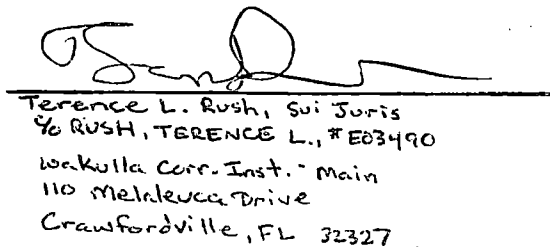 Terence L. Rush, Sui Juris
c/o RUSH, TERENCE L., # E03490
Wakulla Corr. Inst. - Main
110 Melaleuca Drive
Crawfordville, FL 32327